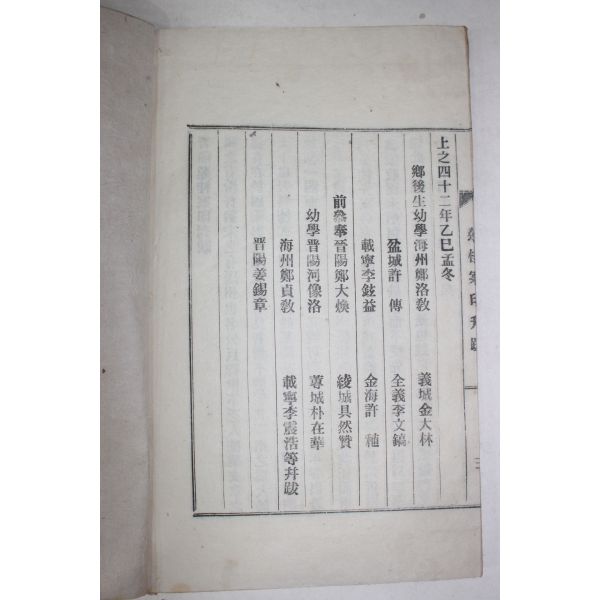 上之四十二年乙巳孟冬
鄕後生幼學海州鄭洛敎 義城金大林
盆城許 傳 全義李文鎬
載寧李鉉益 金海許
前叅奉晉陽鄭大煥 綾城具然贊
幼學晋陽河像洛 蓴城朴在華
海州鄭貞敎 載寧李震浩等幷跋
晋陽姜錫章